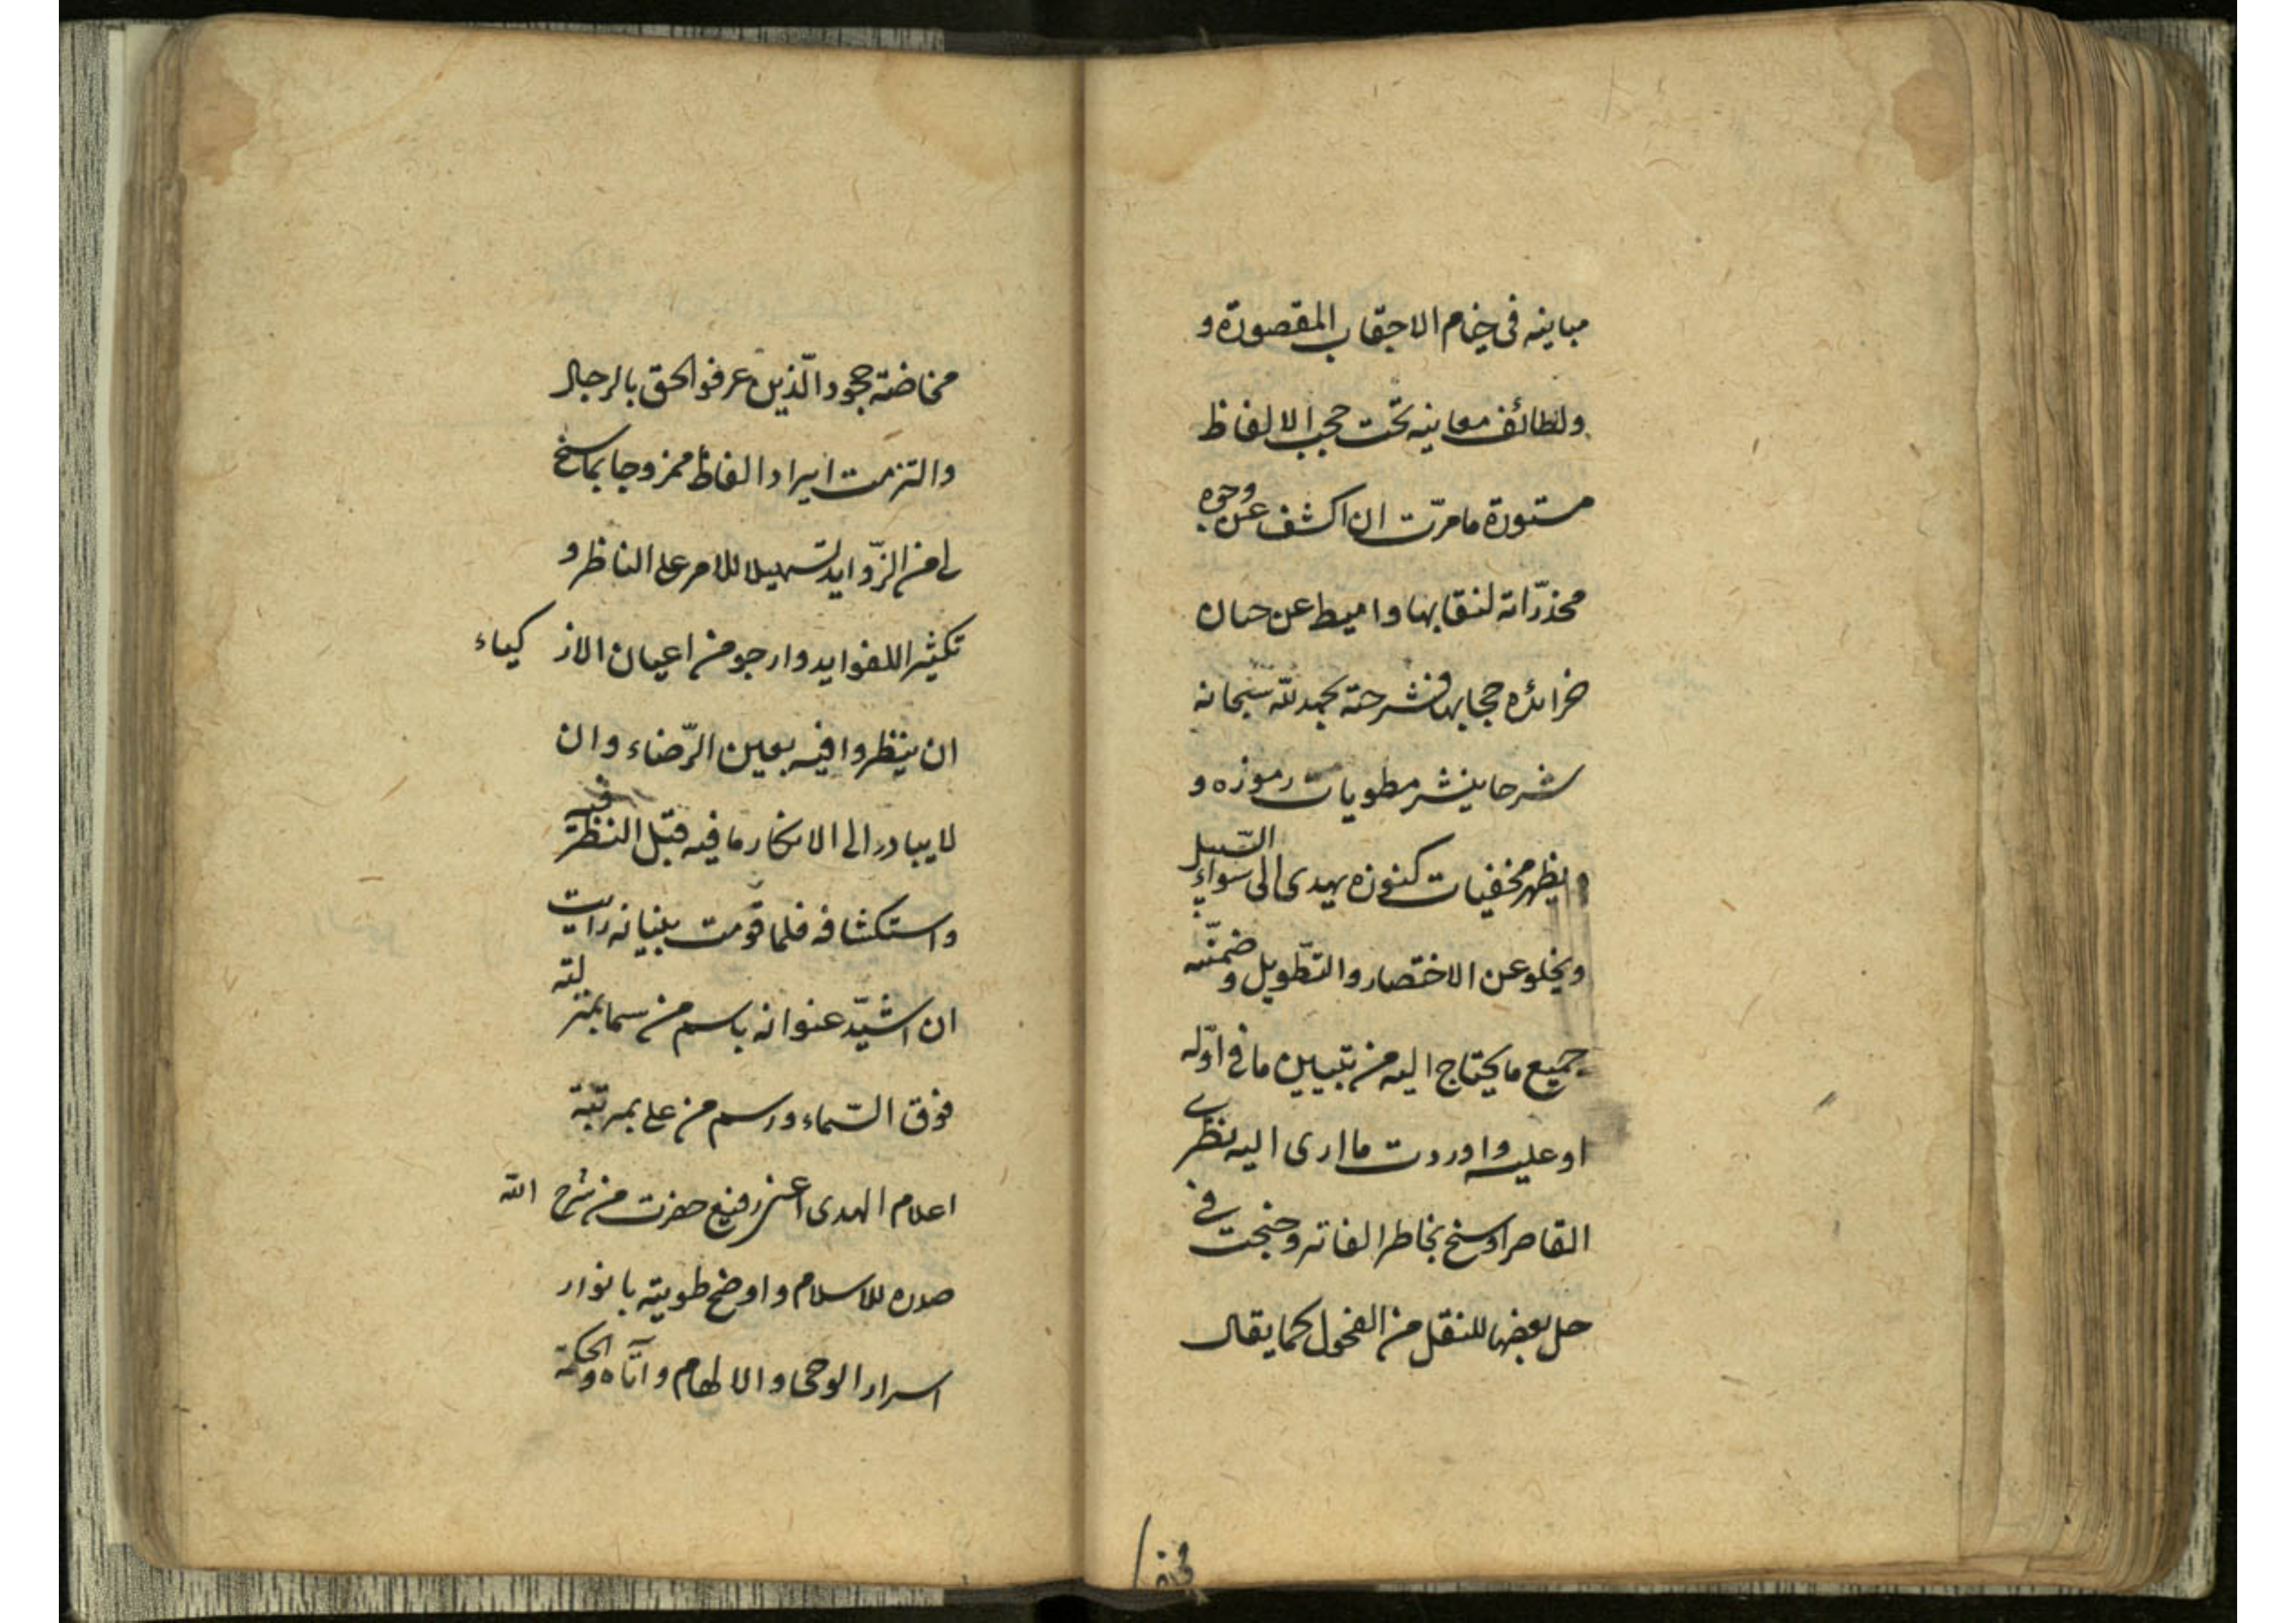 مبانيه فى خيام الاحتجاب المقصورة و
ولطائف معانيه تحت حجب الالفاظ
مستورة مامرّت ان اكشف عن وجوه
مخدّراته لنقابها واميط عن حسان
خرائده حجابها فشرحته بحمد لله سبحانه
شرحا ينشر مطويات رموزه و
يظهر مخفيات كنوزه يهدى الى سواء السّبيل
ويخلو عن الاختصار والتّطويل وضمّنته
جميع ما يحتاج اليه من تبيين ما فى اوّله
او عليه واوردت ما ارى اليه نظرى
القاصر اوسنخ بخاطر الفاتر وجنحت فى
حل بعضها للنقل من الفحول كما يقال
مخاضة جحود الّذين عرفوا الحق بالرجال
والتزمت ايراد الفاظ ممزوجا بما سنح
لى من الزّوايد تسهيلا للامر على الناظر و
تكثيرا للفوايد وارجو من اعيان الاذكياء
ان ينظروا فيه بعين الرّضاء وان
لا يبادر الى الانكار ما فيه قبل النظر فيه
واستكشافه فلما قومت بنيانه رايت
ان اشيّد عنوانه باسم من سما بمنزلته
فوق السّماء ورسم من على بمرتبة
اعلام الهدى اعنى رفيع حضرت من شرح الله
صدره للاسلام واوضح طويته بانوار
اسرار الوحى والالهام وآتاه والحكمة